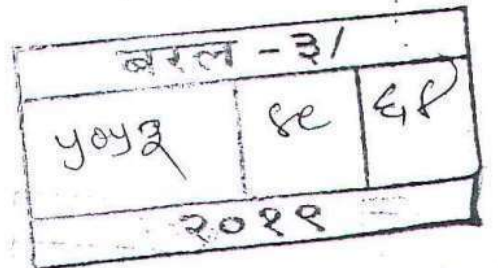 बरल - ३/
५०५३ ४९
२०१९